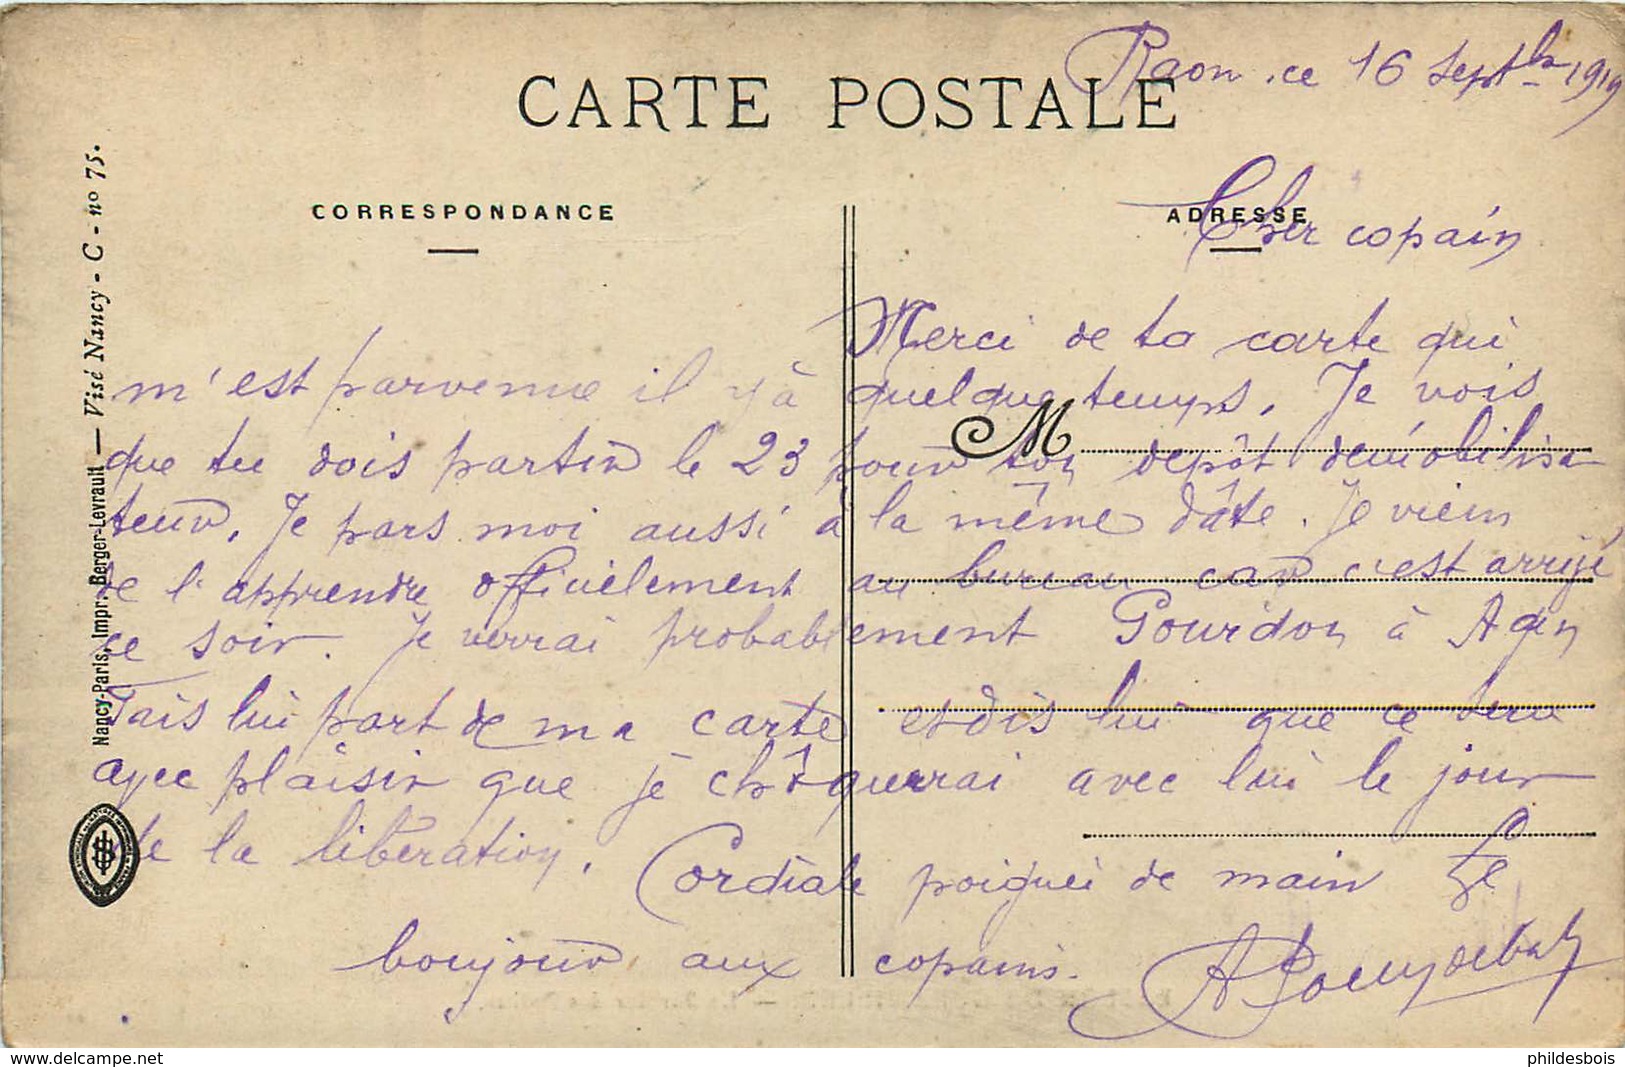 Raon, ce 16 Septbre 1919
CARTE POSTALE
CORRESPONDANCE
ADRESSE
Cher copain
Merci de ta carte qui
m'est parvenue il y à quelque temps. Je vois
M
que tu dois partir le 23 pour ton depôt démobilisa
teur. Je pars moi aussi à la même dâte. Je viens
de l'apprendre officiélement au bureau car c'est arrivé
ce soir. Je verrai probablement Gourdon à Agen
Fais lui part de ma carte et dis lui que ce sera
avec plaisir que je chôquerrai avec lui le jour
de la libération. Cordiale poignée de main Le
bonjour aux copains.
Nancy-Paris, Impr. Berger-Levrault — Visé Nancy - C - nº 75.
www.delcampe.net
phildesbois